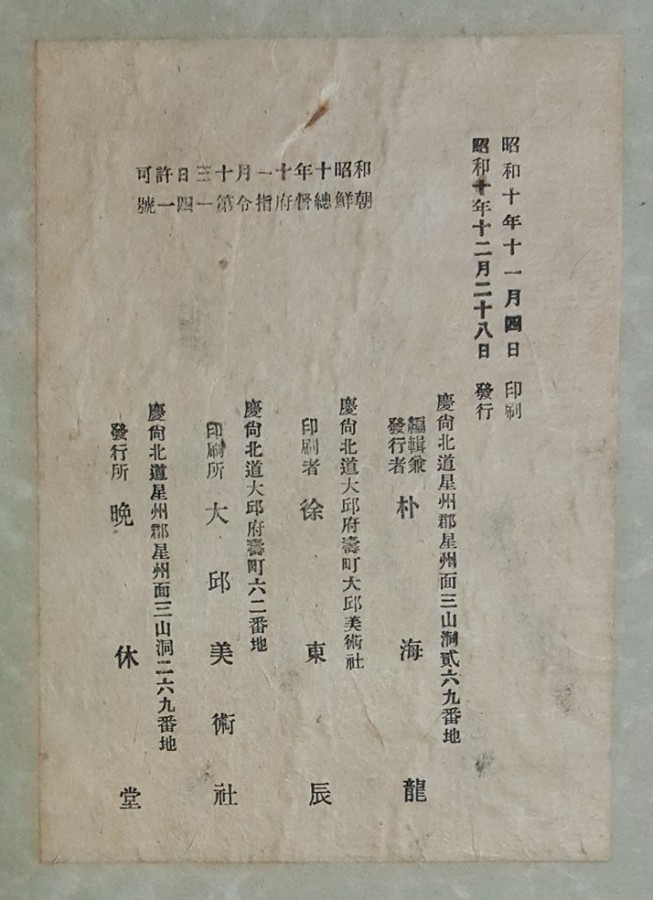 昭和十年十一月四日 印刷
昭和十年十二月二十八日 發行
和昭十年十一月十三日許可
朝鮮總督府指令第一四一號
慶尙北道星州郡星州面三山洞貳六九番地
編輯兼
發行者 朴海龍
慶尙北道大邱府壽町大邱美術社
印刷者 徐東辰
慶尙北道大邱府壽町六二番地
印刷所 大邱美術社
慶尙北道星州郡星州面三山洞二六九番地
發行所 晩休堂